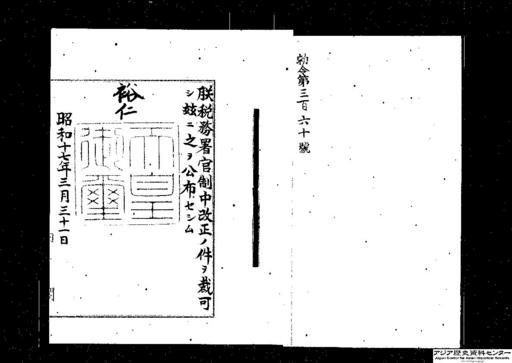 勅令第三百六十號
朕税務署官制中改正ノ件ヲ裁可
シ玆ニ之ヲ公布セシム
裕仁
天皇御璽
昭和十七年三月三十一日
アジア歴史資料センター
Japan Center for Asian Historical Records